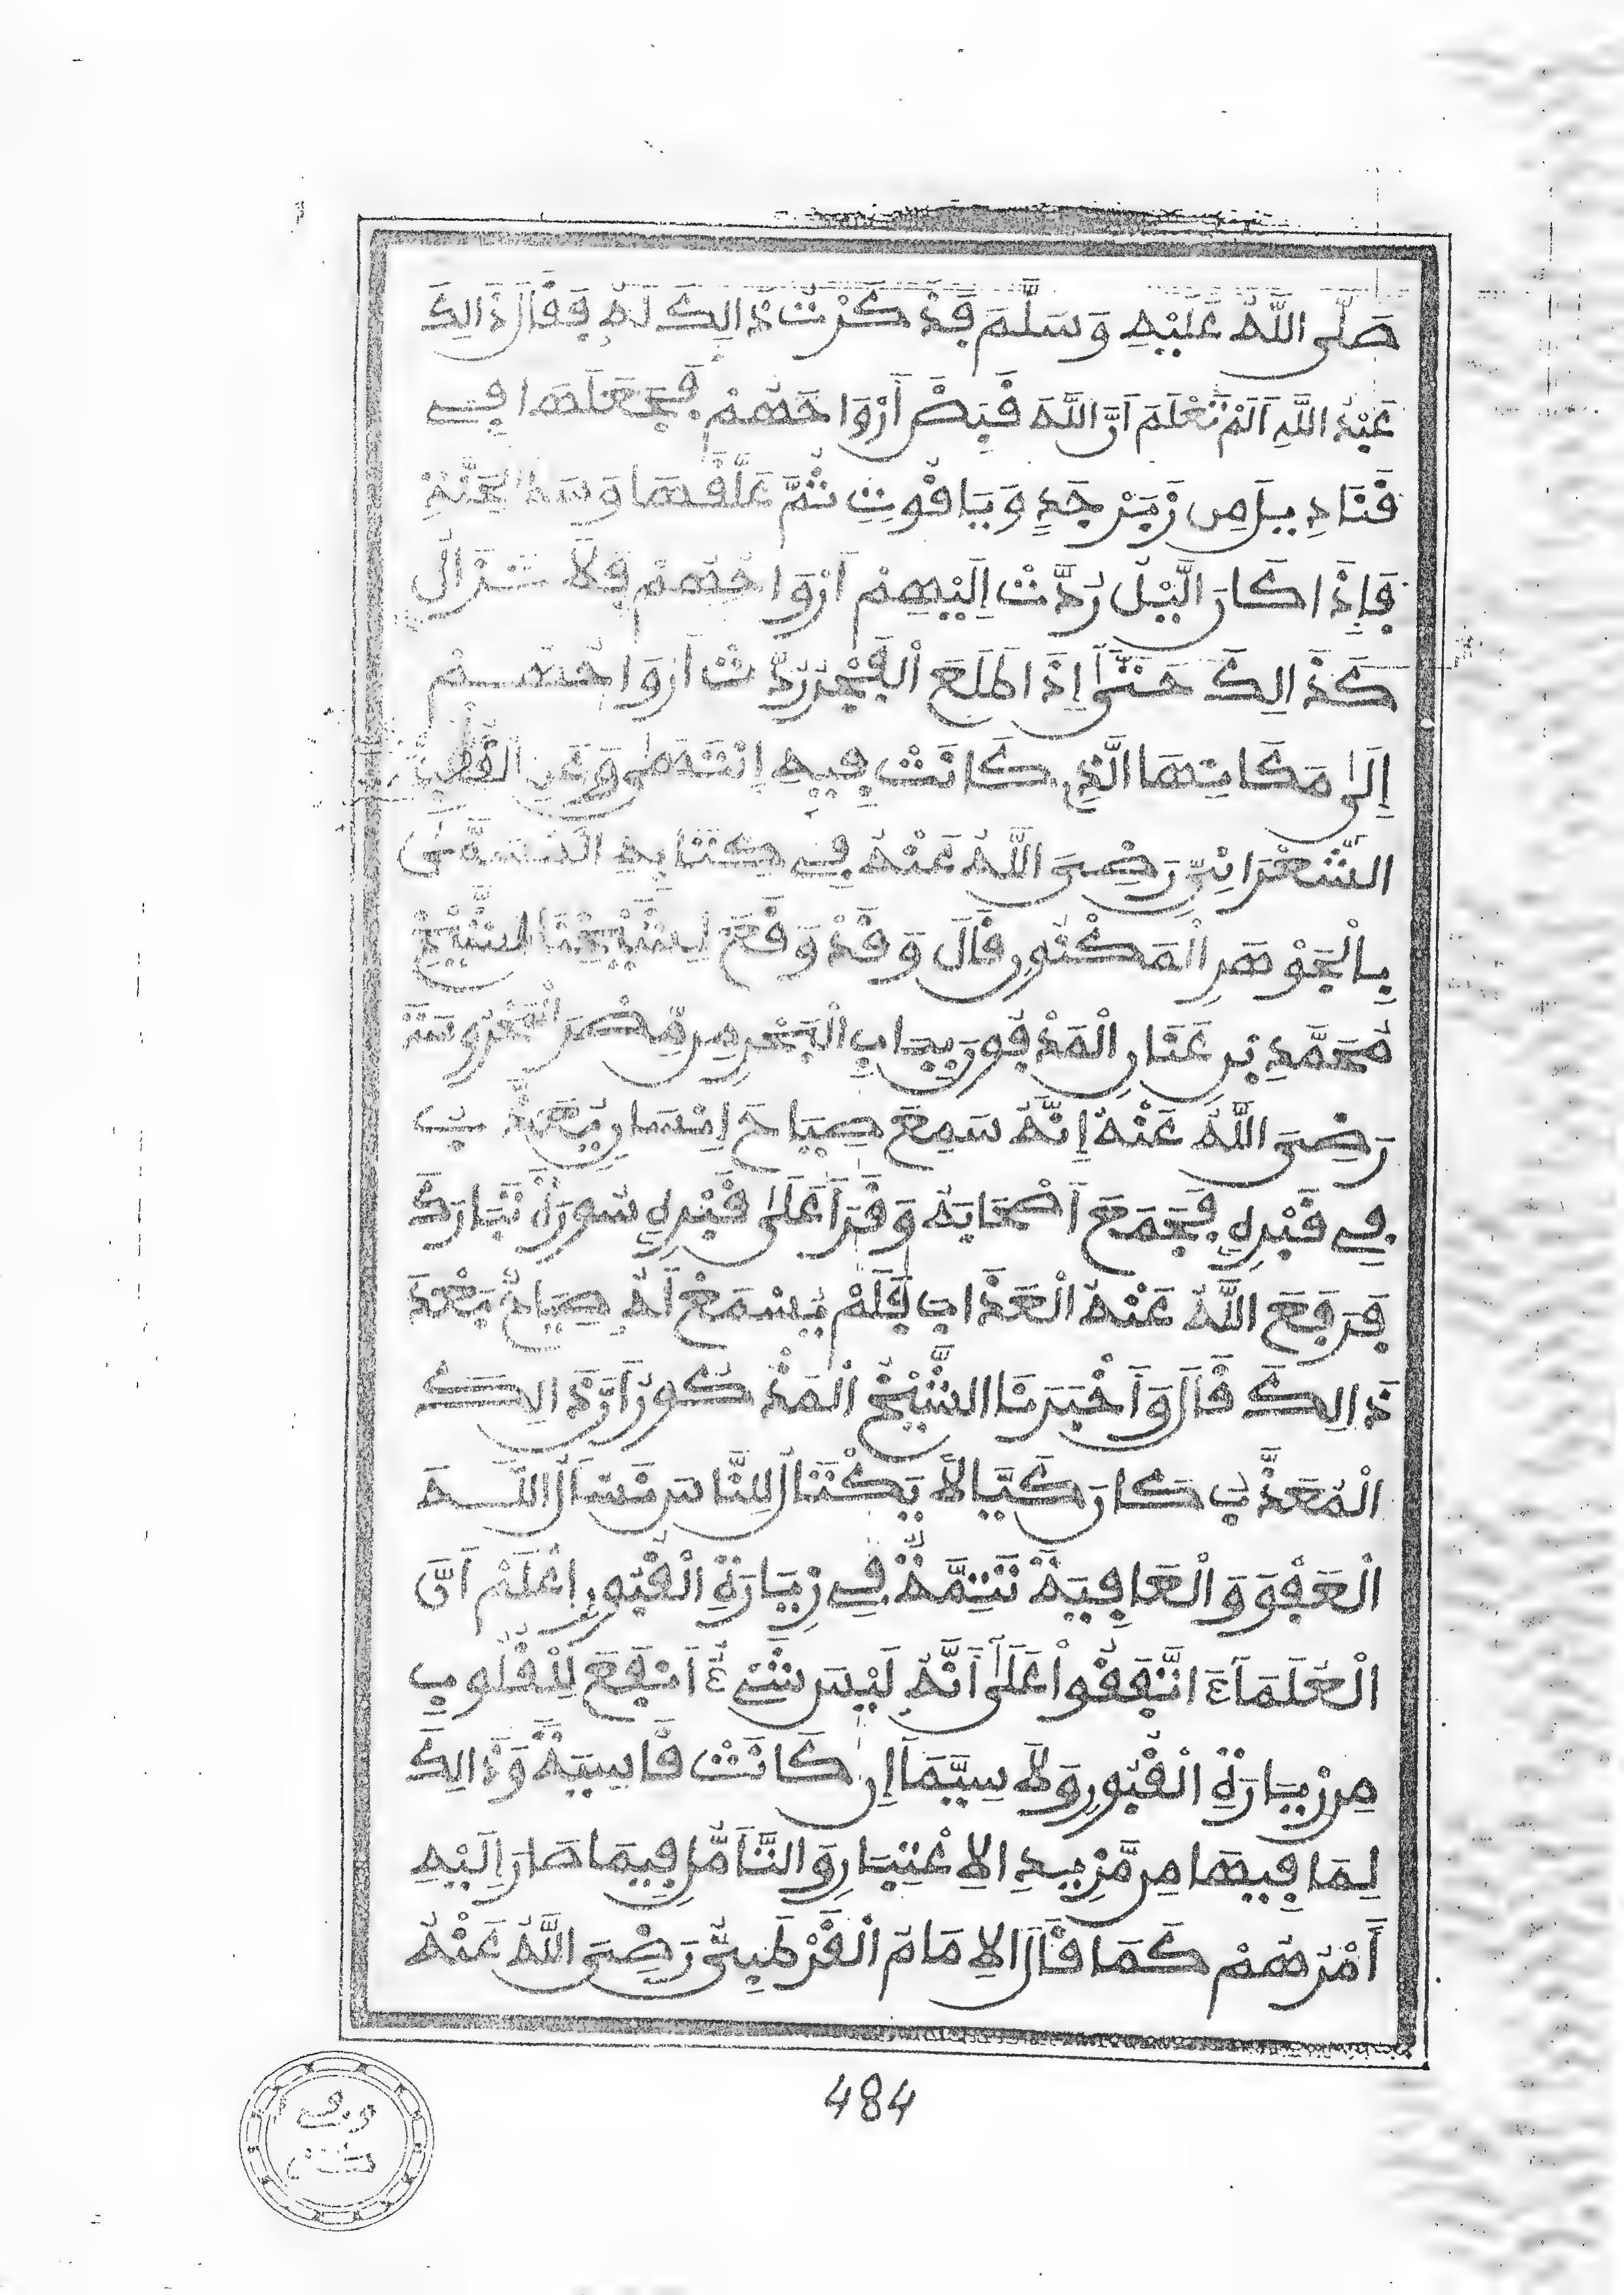 صَلَّى اللَّهُ عَلَيْهِ وَسَلَّمَ فَذَكَرْتُ ذَالِكَ لَهُ فَقَالَ ذَالِكَ
عَبْدُ اللَّهِ أَلَمْ تَعْلَمَ أَنَّ اللَّهَ قَبَضَ أَرْوَاحَهُمْ فَجَعَلَهَا فِي
قَنَادِيلَ مِن زَبَرْجَدٍ وَيَاقُوتٍ ثُمَّ عَلَّقَهَا وَسَطَ الْجَنَّةِ
فَإِذَا كَانَ الَّيْلُ رُدَّتْ إِلَيْهِمْ أَرْوَاحُهُمْ فَلاَ تَزَالُ
كَذَالِكَ حَتَّى إِذَا طَلَعَ الْفَجْرُ رُدَّتْ أَرْوَاحُهُمْ
إِلَى مَكَانِهَا الَّذِي كَانَتْ فِيهِ إِنْتَهَى وَعَنِ الْقُطْبِ
الشَّعْرَانِيِّ رَضِيَ اللَّهُ عَنْهُ فِي كِتَابِهِ الْمُسَمَّى
بِالْجَوْهَرِ الْمَكْنُونِ قَالَ وَقَدْ وَقَعَ لِشَيْخِنَا الشَّيْخِ
مُحَمَّدِ بْنِ عَنَانِ الْمَدْفُونِ بِبَابِ الْبَحْرِ مِن مِّصْرَ الْمَحْرُوسَةَ
رَضِيَ اللَّهُ عَنْهُ إِنَّهُ سَمِعَ صِيَاحَ إِنْسَانٍ يُعَذَّبُ
فِي قَبْرِهِ فَجَمَعَ أَصْحَابَهُ وَقَرَأَ عَلَى قَبْرِهِ سُورَةَ تَبَارَكَ
فَرَفَعَ اللَّهُ عَنْهُ الْعَذَابَ فَلَمْ يُسْمَعْ لَهُ صِيَاحٌ بَعْدَ
ذَالِكَ قَالَ وَأَخْبَرَنَا الشَّيْخُ الْمَذْكُورُ أَنَّ ذَالِكَ
الْمُعَذَّبَ كَانَ كَيَّالاً يَكْتَالُ لِلنَّاسِ نَسْأَلُ اللَّهَ
الْعَفْوَ وَالْعَافِيَةَ تَتِمَّةٌ فِي زِيَارَةِ الْقُبُورِ إِعْلَمْ أَنَّ
الْعُلَمَآءَ اتَّفَقُواْ عَلَى أَنَّهُ لَيْسَ شَيْءٌ أَنْفَعَ لِلْقُلُوبِ
مِن زِيَارَةِ الْقُبُورِ وَلاَ سِيَّمَا إِن كَانَتْ قَاسِيَةً وَذَالِكَ
لِمَا فِيهَا مِن مَّزِيدِ الاِعْتِبَارِ وَالتَّأَمُّلِ فِيمَا صَارَ إِلَيْهِ
أَمْرُهُمْ كَمَا قَالَ الاِمَامُ الْقُرْطُبِيُّ رَضِيَ اللَّهُ عَنْهُ
484